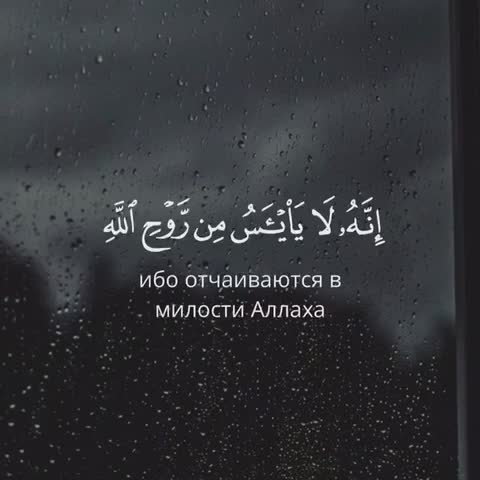 إِنَّهُۥ لَا يَا۟يْـَٔسُ مِن رَّوْحِ ٱللَّهِ
ибо отчаиваются в
милости Аллаха